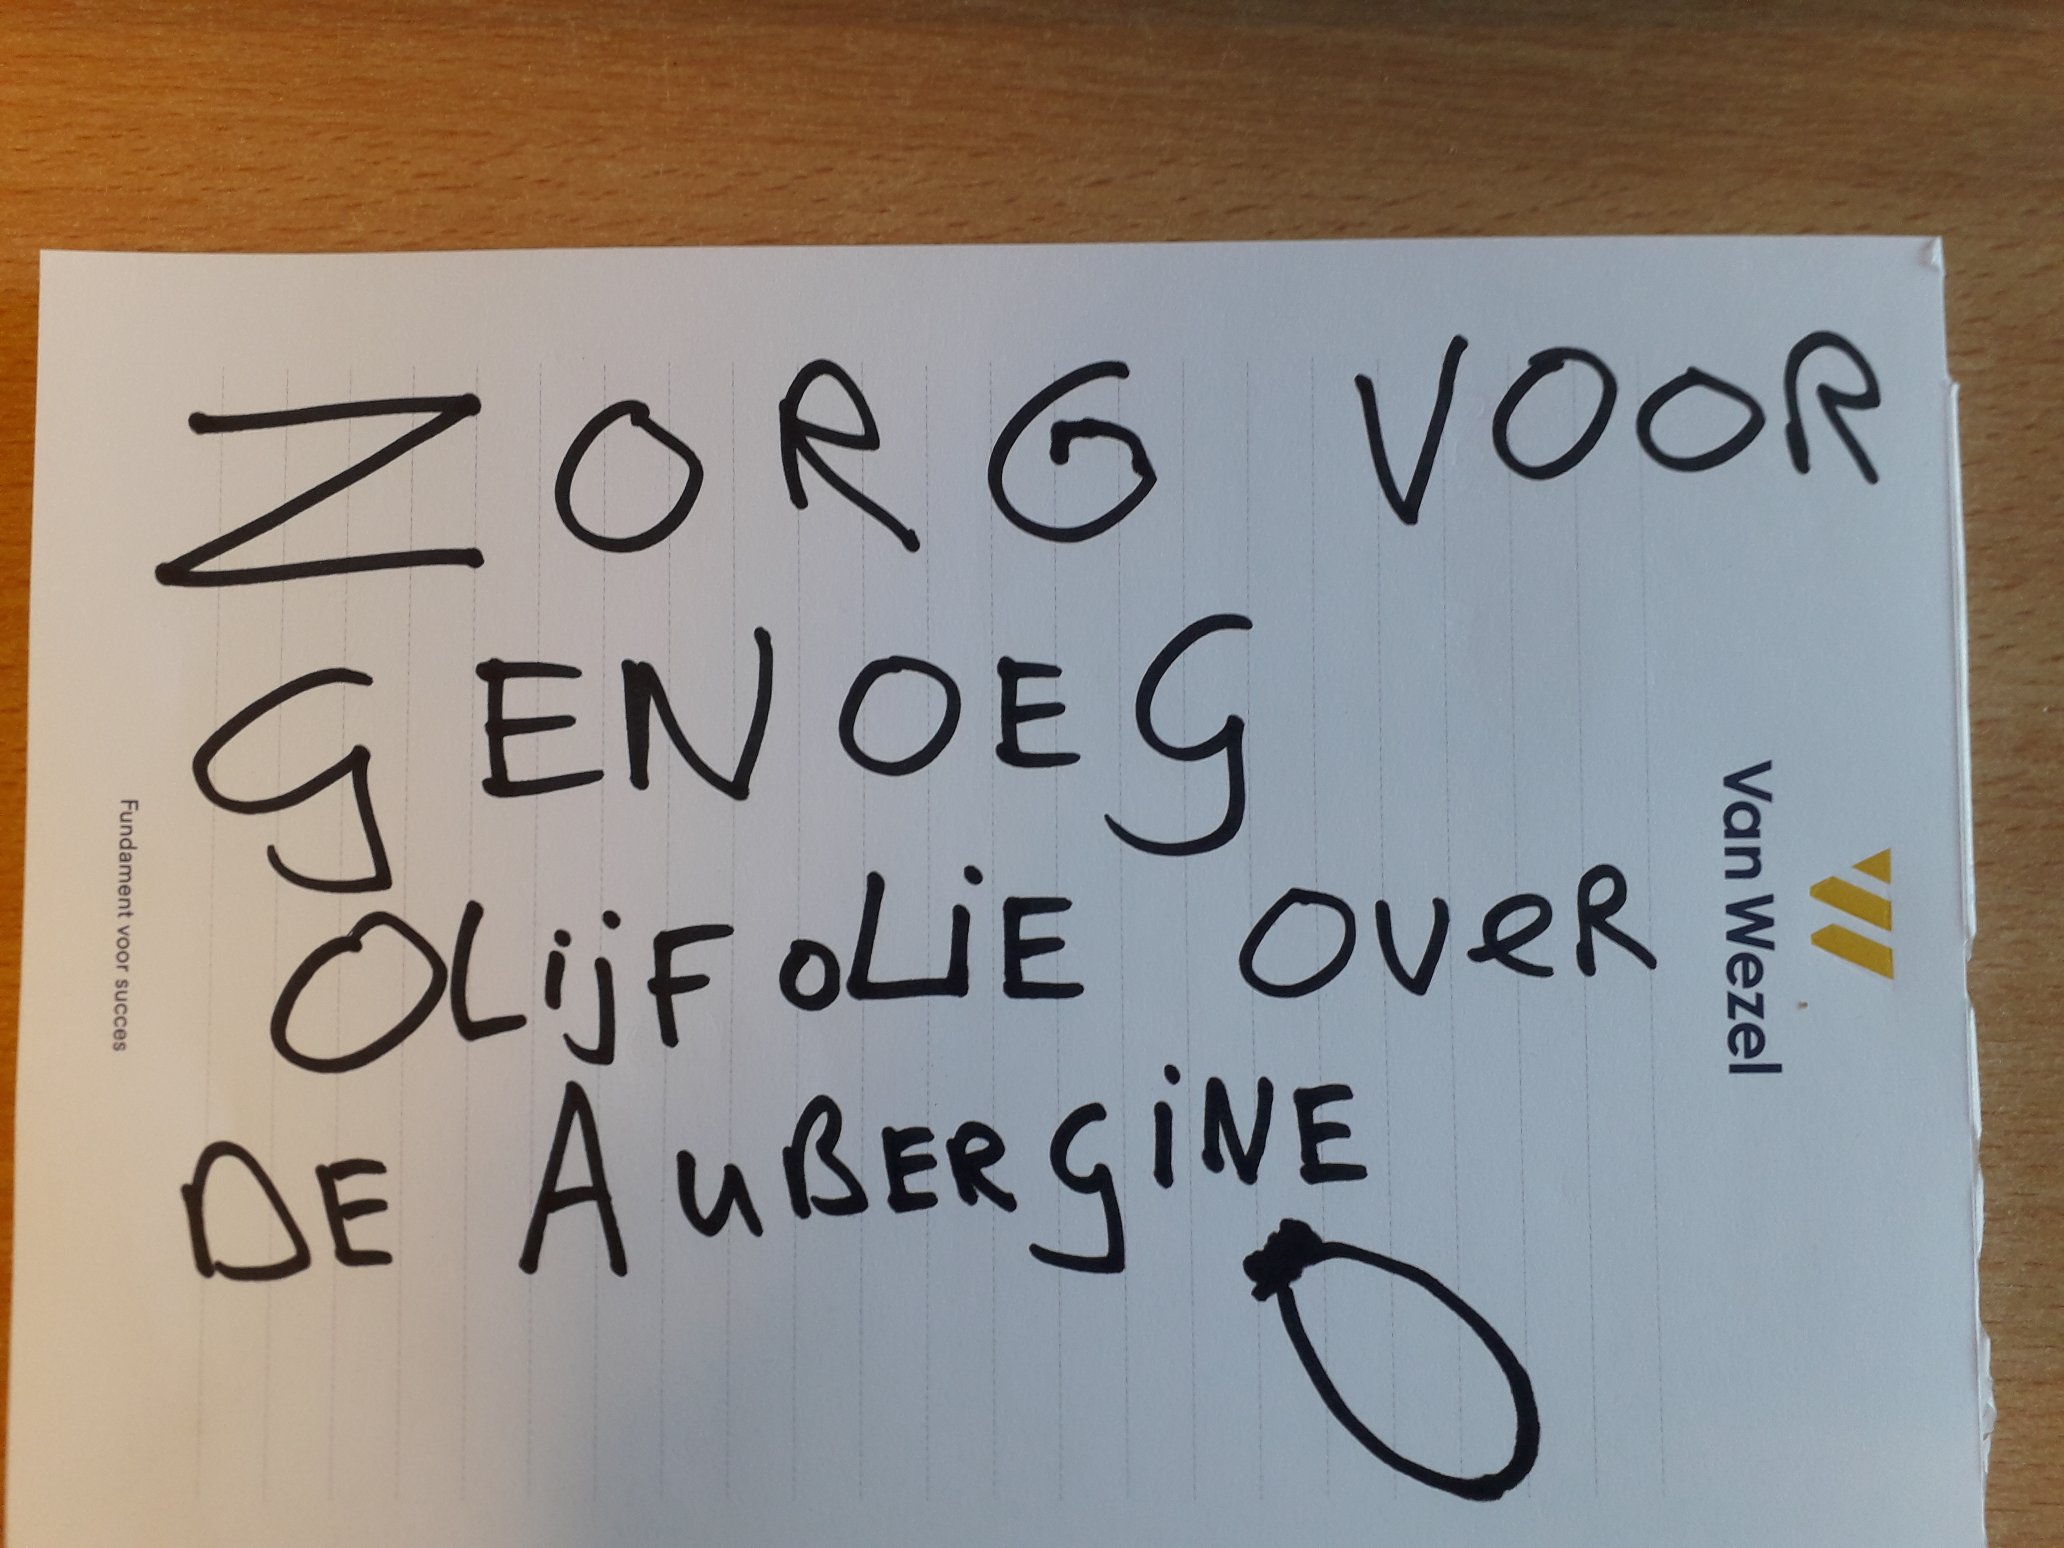 ZORG VOOR
GENOEG
OLijFOLiE OVeR
DE AuBERGiNE
Van Wezel
Fundament voor succes